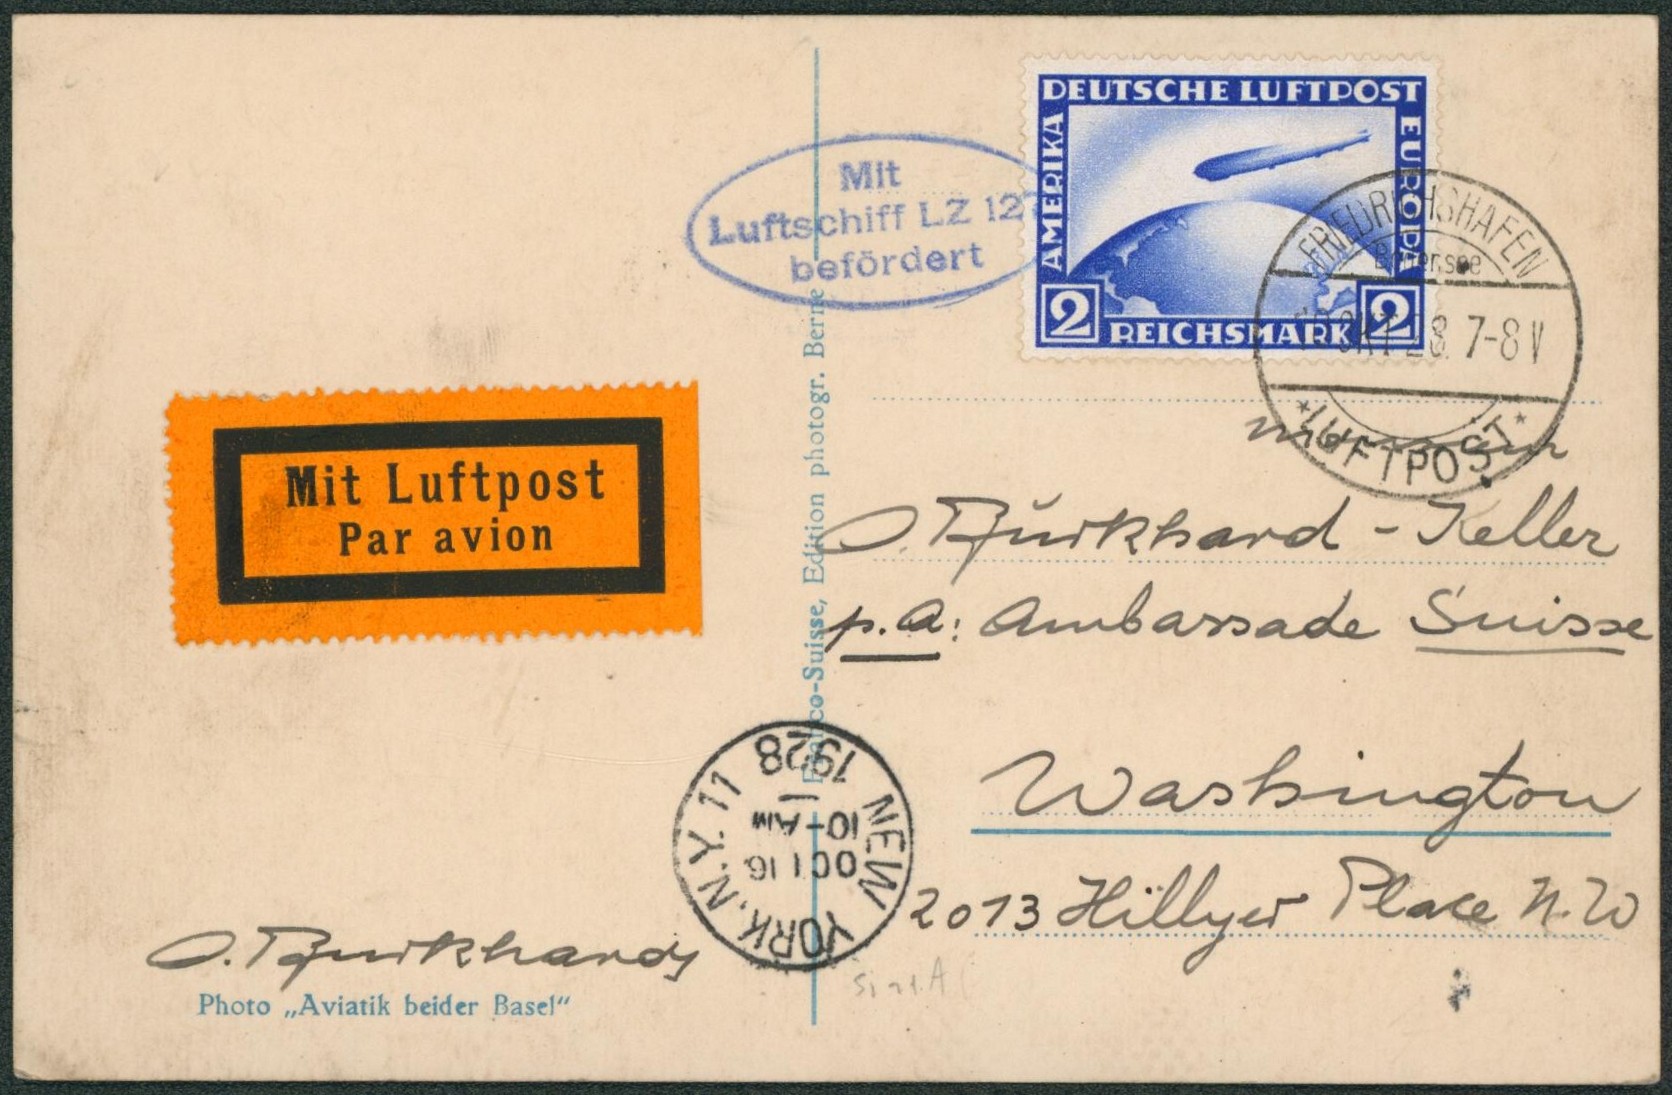 DEUTSCHE LUFTPOST
AMERIKA
EUROPA
2 REICHSMARK 2
Mit
Luftschiff LZ 127
befördert
FRIEDRICHSHAFEN
Bodensee
OKT 28. 7-8 V
* LUFTPOST *
Mit Luftpost
Par avion
O. Burkhard-Keller
p.a: Ambassade Suisse
Washington
2013 Hillyer Place N.W
-Suisse, Edition photogr. Berne
NEW YORK, N.Y. 11
OCT 16
10-AM
1928
O. Burkhard
Photo „Aviatik beider Basel“